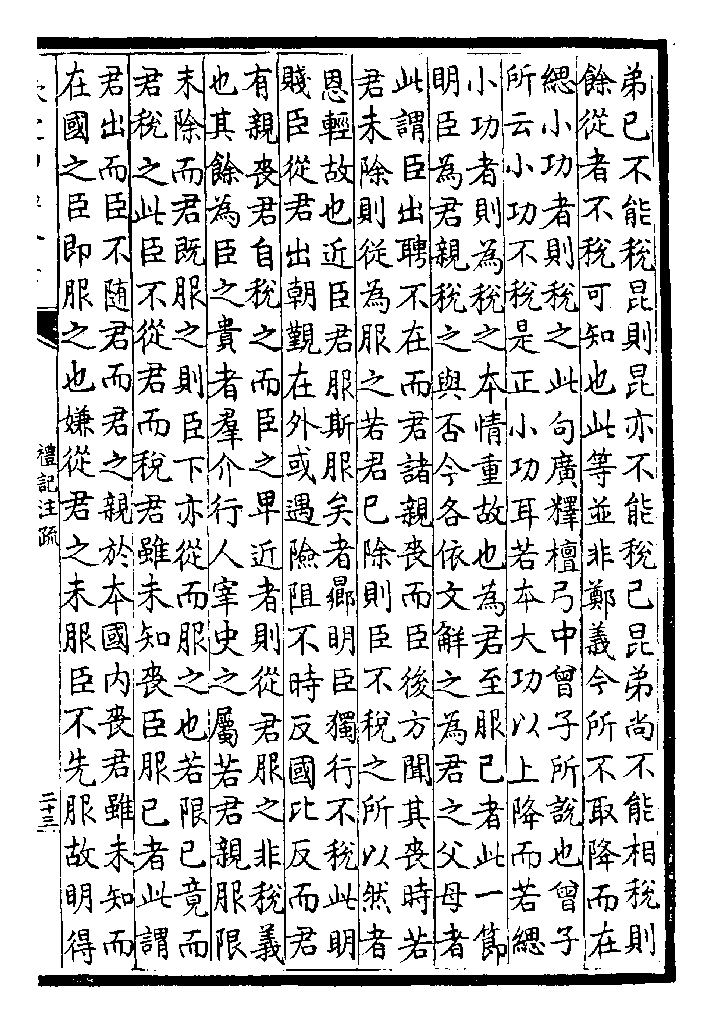 弟已不能稅昆則昆亦不能稅已昆弟尚不能相稅則
餘從者不稅可知也此等並非鄭義今所不取降而在
緦小功者則稅之此句廣釋檀弓中曾子所說也曾子
所云小功不稅是正小功耳若本大功以上降而若緦
小功者則為稅之本情重故也為君至服已者此一節
明臣為君親稅之與否今各依文解之為君之父母者
此謂臣出聘不在而君諸親喪而臣後方聞其喪時若
君未除則從為服之若君已除則臣不稅之所以然者
恩輕故也近臣君服斯服矣者鄉明臣獨行不稅此明
賤臣從君出朝覲在外或遇險阻不時反國比反而君
有親喪君自稅之而臣之卑近者則從君服之非稅義
也其餘為臣之貴者羣介行人宰史之屬若君親服限
未除而君既服之則臣下亦從而服之也若限已竟而
君稅之此臣不從君而稅君雖未知喪臣服已者此謂
君出而臣不随君而君之親於本國內喪君雖未知而
在國之臣即服之也嫌從君之未服臣不先服故明得
禮記注疏
二十三